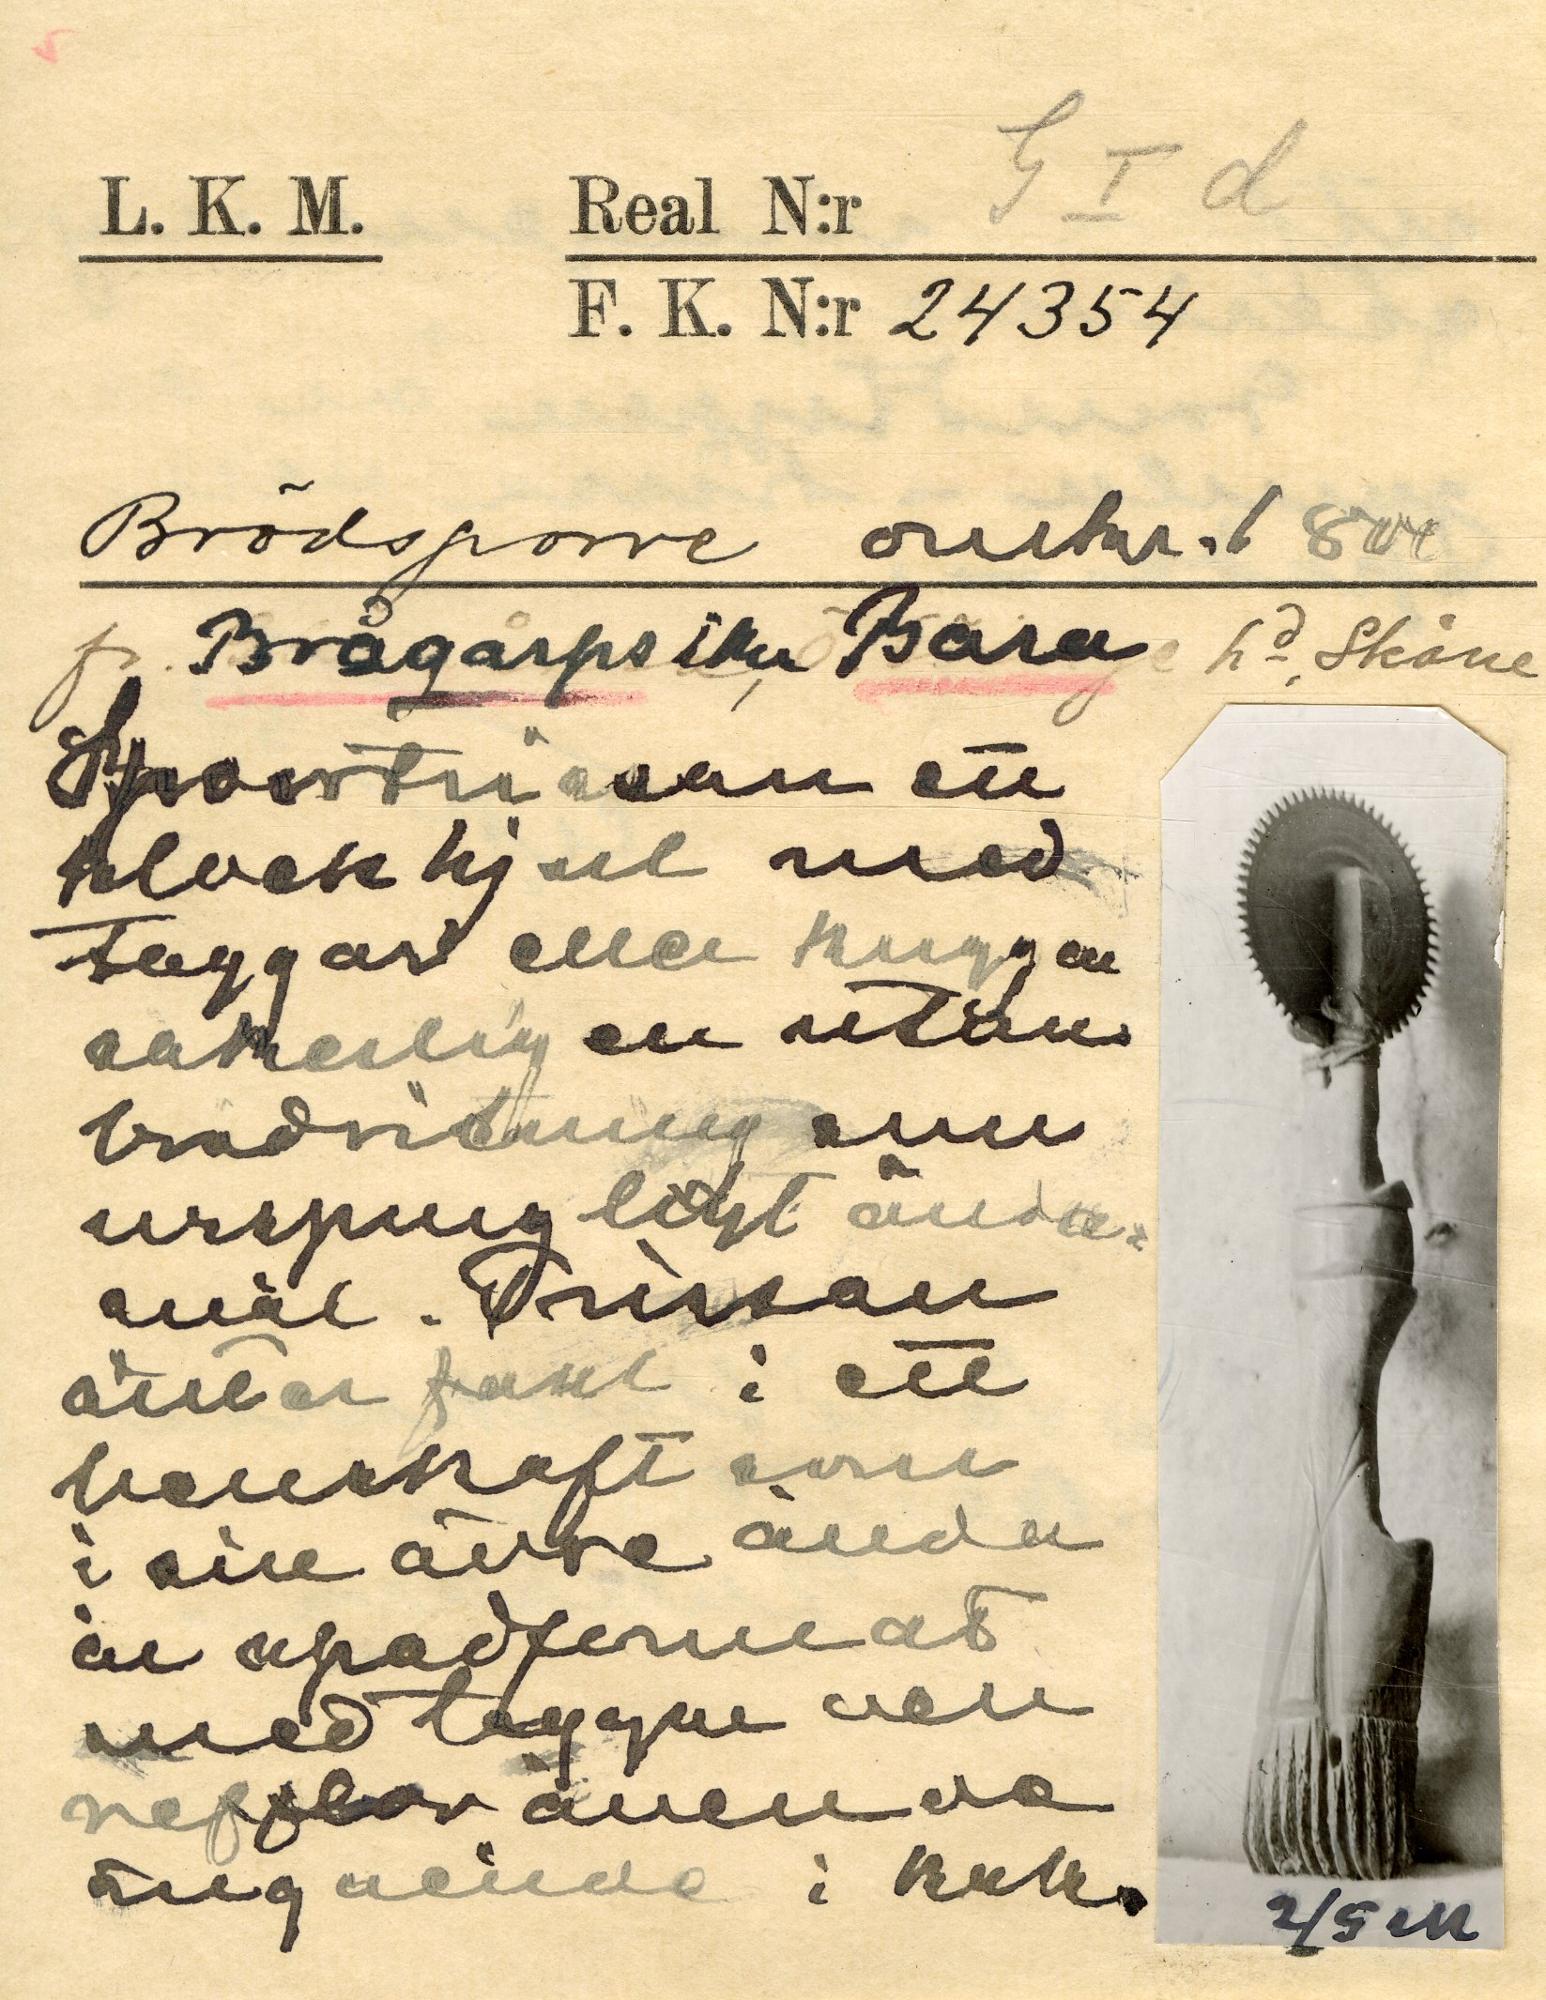 G I d
L. K. M. Real N:r
F. K. N:r 24354
Brödsporre omkr. 1800
fr. Brågarps skn, Bara hd, Skåne
Sporrtrissan ett
klockhjul med
taggar eller kuggar
säkerlig en utan
bradritning som
urspunglögt ända-
mål. Trissan
sitter fast i ett
benskaft som
i sin övre ända
är spadformat
med tyggne ven
refflor ännu
i kuk-
2/5 M